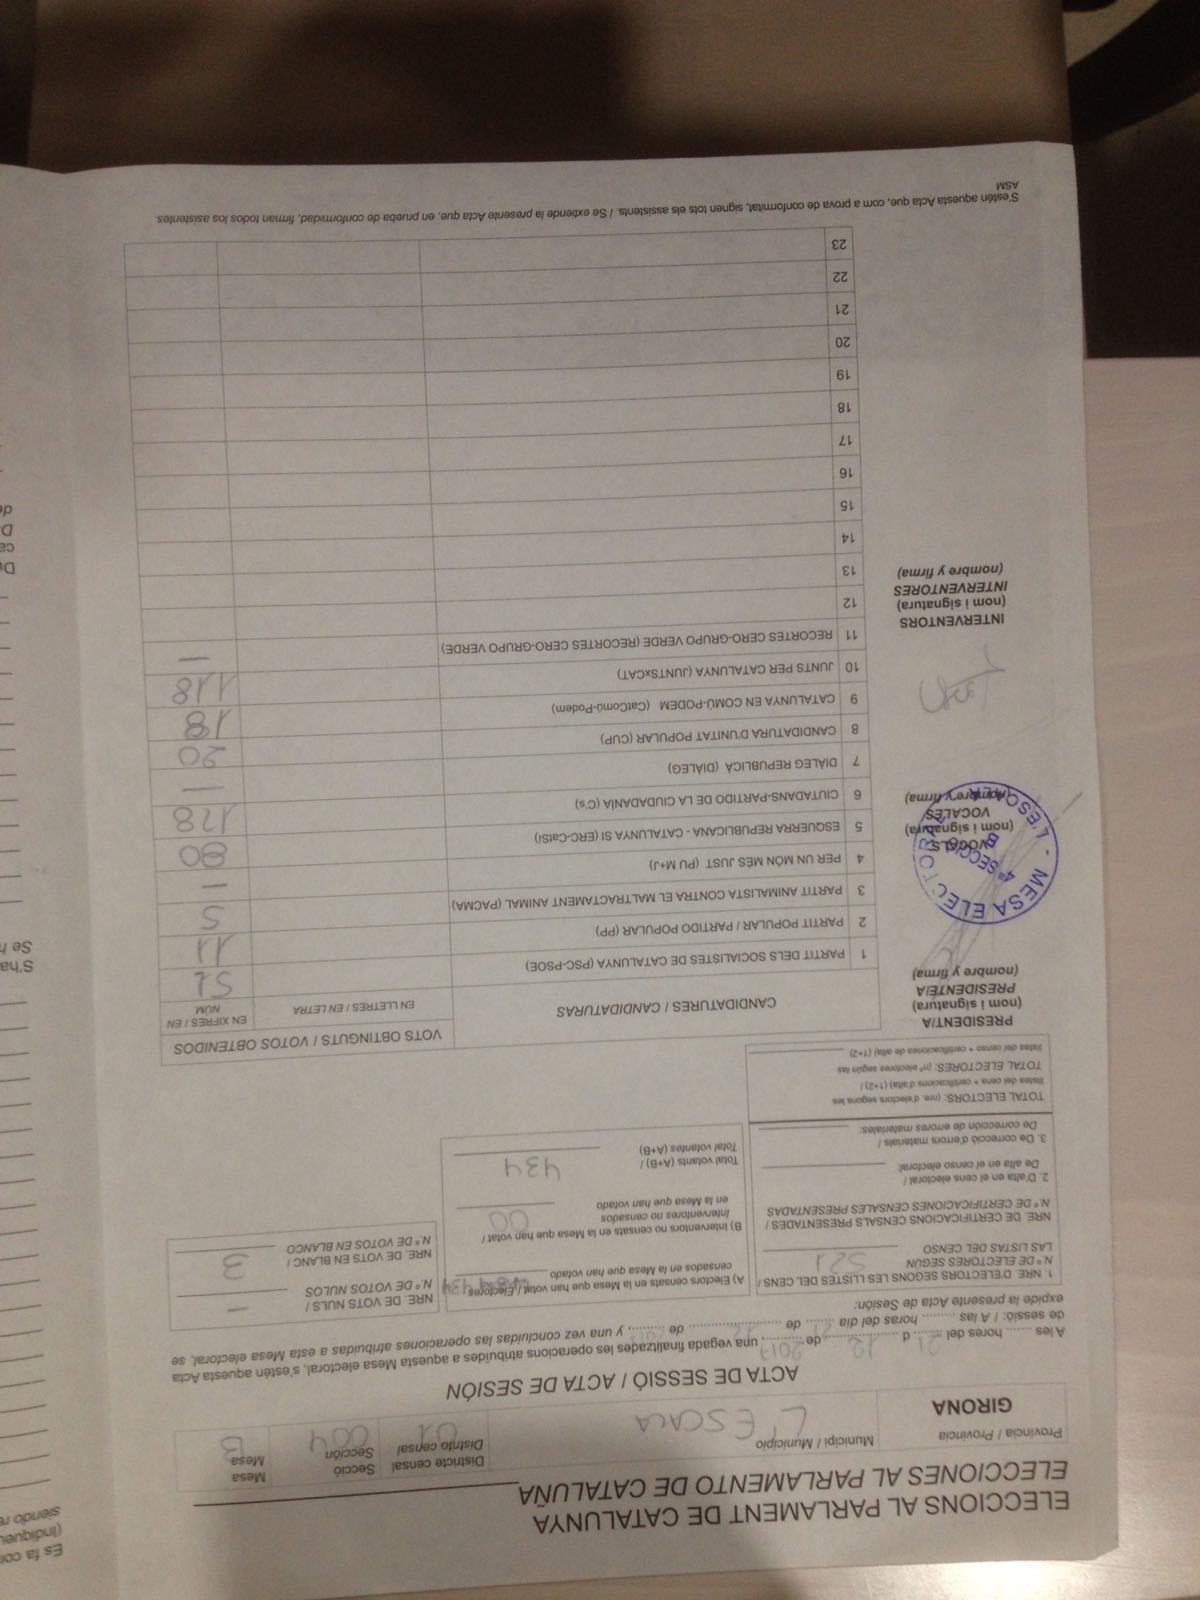 ELECCIONS AL PARLAMENT DE CATALUNYA
ELECCIONES AL PARLAMENTO DE CATALUÑA
Província / Provincia
GIRONA
Municipi / Municipio
L'ESCALA
Districte censal
Distrito censal
01
Secció
Sección
004
Mesa
Mesa
B
ACTA DE SESSIÓ / ACTA DE SESIÓN
A les ........ hores del 21 d 12 de 2017, una vegada finalitzades les operacions atribuïdes a aquesta Mesa electoral, s'estén aquesta Acta
de sessió: / A las ......... horas del día 21 de 12 de 2017 y una vez concluidas las operaciones atribuidas a esta Mesa electoral, se
expide la presente Acta de Sesión:
1. NRE. D'ELECTORS SEGONS LES LLISTES DEL CENS /
N.º DE ELECTORES SEGÚN
LAS LISTAS DEL CENSO 521
NRE. DE CERTIFICACIONS CENSALS PRESENTADES /
N.º DE CERTIFICACIONES CENSALES PRESENTADAS
2. D'alta en el cens electoral /
De alta en el censo electoral:
3. De correcció d'errors materials /
De corrección de errores materiales:
TOTAL ELECTORS: (nre. d'electors segons les
llistes del cens + certificacions d'alta) (1+2) /
TOTAL ELECTORES: (nº electores según las
listas del censo + certificaciones de alta) (1+2)
A) Electors censats en la Mesa que han votat / Electores
censados en la Mesa que han votado 434
B) Interventors no censats en la Mesa que han votat /
Interventores no censados
en la Mesa que han votado 00
Total votants (A+B) /
Total votantes (A+B) 434
NRE. DE VOTS NULS /
N.º DE VOTOS NULOS —
NRE. DE VOTS EN BLANC /
N.º DE VOTOS EN BLANCO 3
CANDIDATURES / CANDIDATURAS
VOTS OBTINGUTS / VOTOS OBTENIDOS
EN LLETRES / EN LETRA
EN XIFRES / EN NÚM.
1 PARTIT DELS SOCIALISTES DE CATALUNYA (PSC-PSOE) 51
2 PARTIT POPULAR / PARTIDO POPULAR (PP) 11
3 PARTIT ANIMALISTA CONTRA EL MALTRACTAMENT ANIMAL (PACMA) 5
4 PER UN MÓN MÉS JUST (PU M+J) —
5 ESQUERRA REPUBLICANA - CATALUNYA SI (ERC-CatSí) 80
6 CIUTADANS-PARTIDO DE LA CIUDADANÍA (C's) 128
7 DIÀLEG REPUBLICÀ (DIÀLEG) —
8 CANDIDATURA D'UNITAT POPULAR (CUP) 20
9 CATALUNYA EN COMÚ-PODEM (CatComú-Podem) 18
10 JUNTS PER CATALUNYA (JUNTSxCAT) 118
11 RECORTES CERO-GRUPO VERDE (RECORTES CERO-GRUPO VERDE) —
12
13
14
15
16
17
18
19
20
21
22
23
PRESIDENT/A
(nom i signatura)
PRESIDENTE/A
(nombre y firma)
VOCALS
(nom i signatura)
VOCALES
(nombre y firma)
MESA ELECTORAL - L'ESCALA -
4ª SECCIÓ
B
INTERVENTORS
(nom i signatura)
INTERVENTORES
(nombre y firma)
S'estén aquesta Acta que, com a prova de conformitat, signen tots els assistents. / Se extiende la presente Acta que, en prueba de conformidad, firman todos los asistentes.
ASM
Es fa con
(indiqueu
siendo re
S'ha
Se h
De
ca
D
de